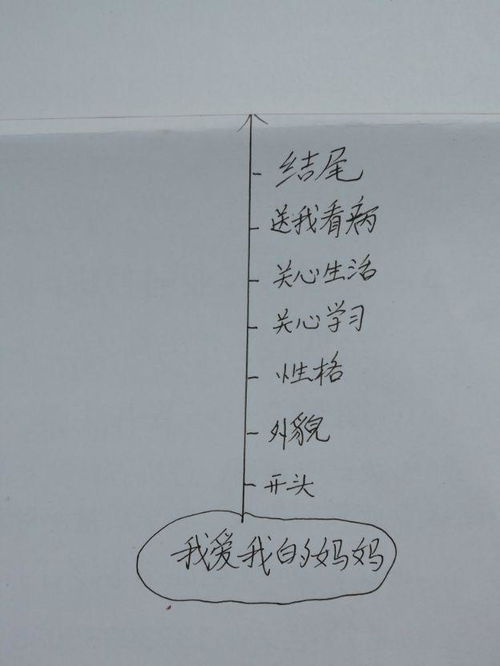 结尾
送我看病
关心生活
关心学习
性格
外貌
开头
我爱我的妈妈